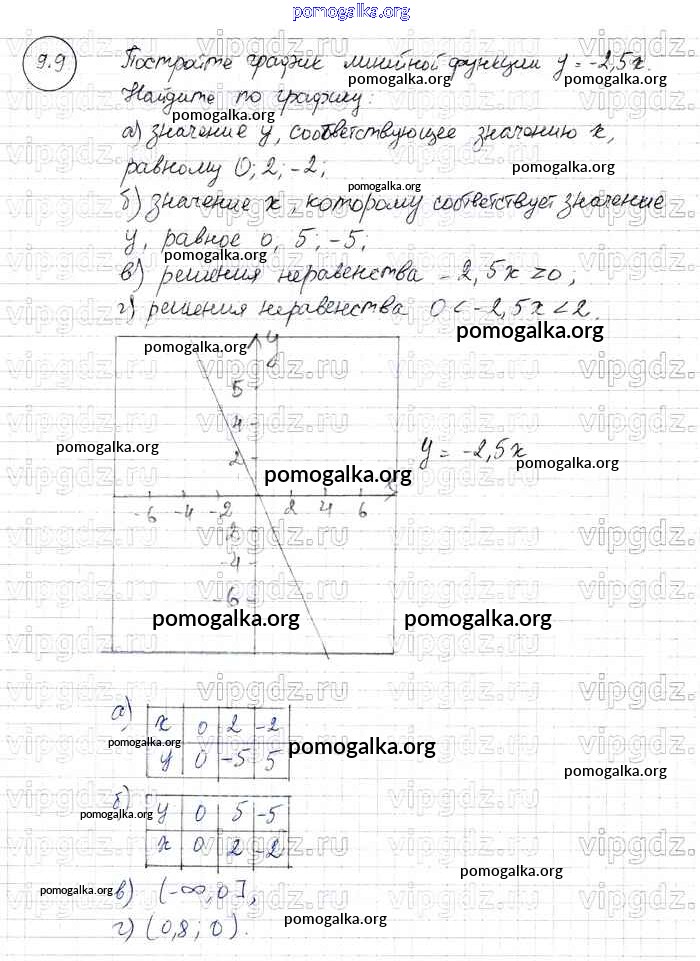 pomogalka.org
9.9 Постройте график линейной функции y = -2,5x.
pomogalka.org pomogalka.org
Найдите по графику:
pomogalka.org
а) значение y, соответствующее значению x,
pomogalka.org
равному 0; 2; -2;
pomogalka.org
pomogalka.org
б) значение x, которому соответствует значение
y, равное 0, 5; -5;
pomogalka.org
в) решения неравенства -2,5x ≥ 0;
г) решения неравенства 0 < -2,5x < 2.
pomogalka.org
pomogalka.org
y
5
4
2
y = -2,5x
pomogalka.org
pomogalka.org
pomogalka.org
-6 -4 -2 2 4 6
-2
-4
-6
pomogalka.org pomogalka.org
а) x 0 2 -2
pomogalka.org pomogalka.org
y 0 -5 5
pomogalka.org
б) y 0 5 -5
pomogalka.org
x 0 2 -2
pomogalka.org
pomogalka.org
в) (-∞, 0],
г) (0,8; 0).
pomogalka.org
pomogalka.org
vipgdz.ru